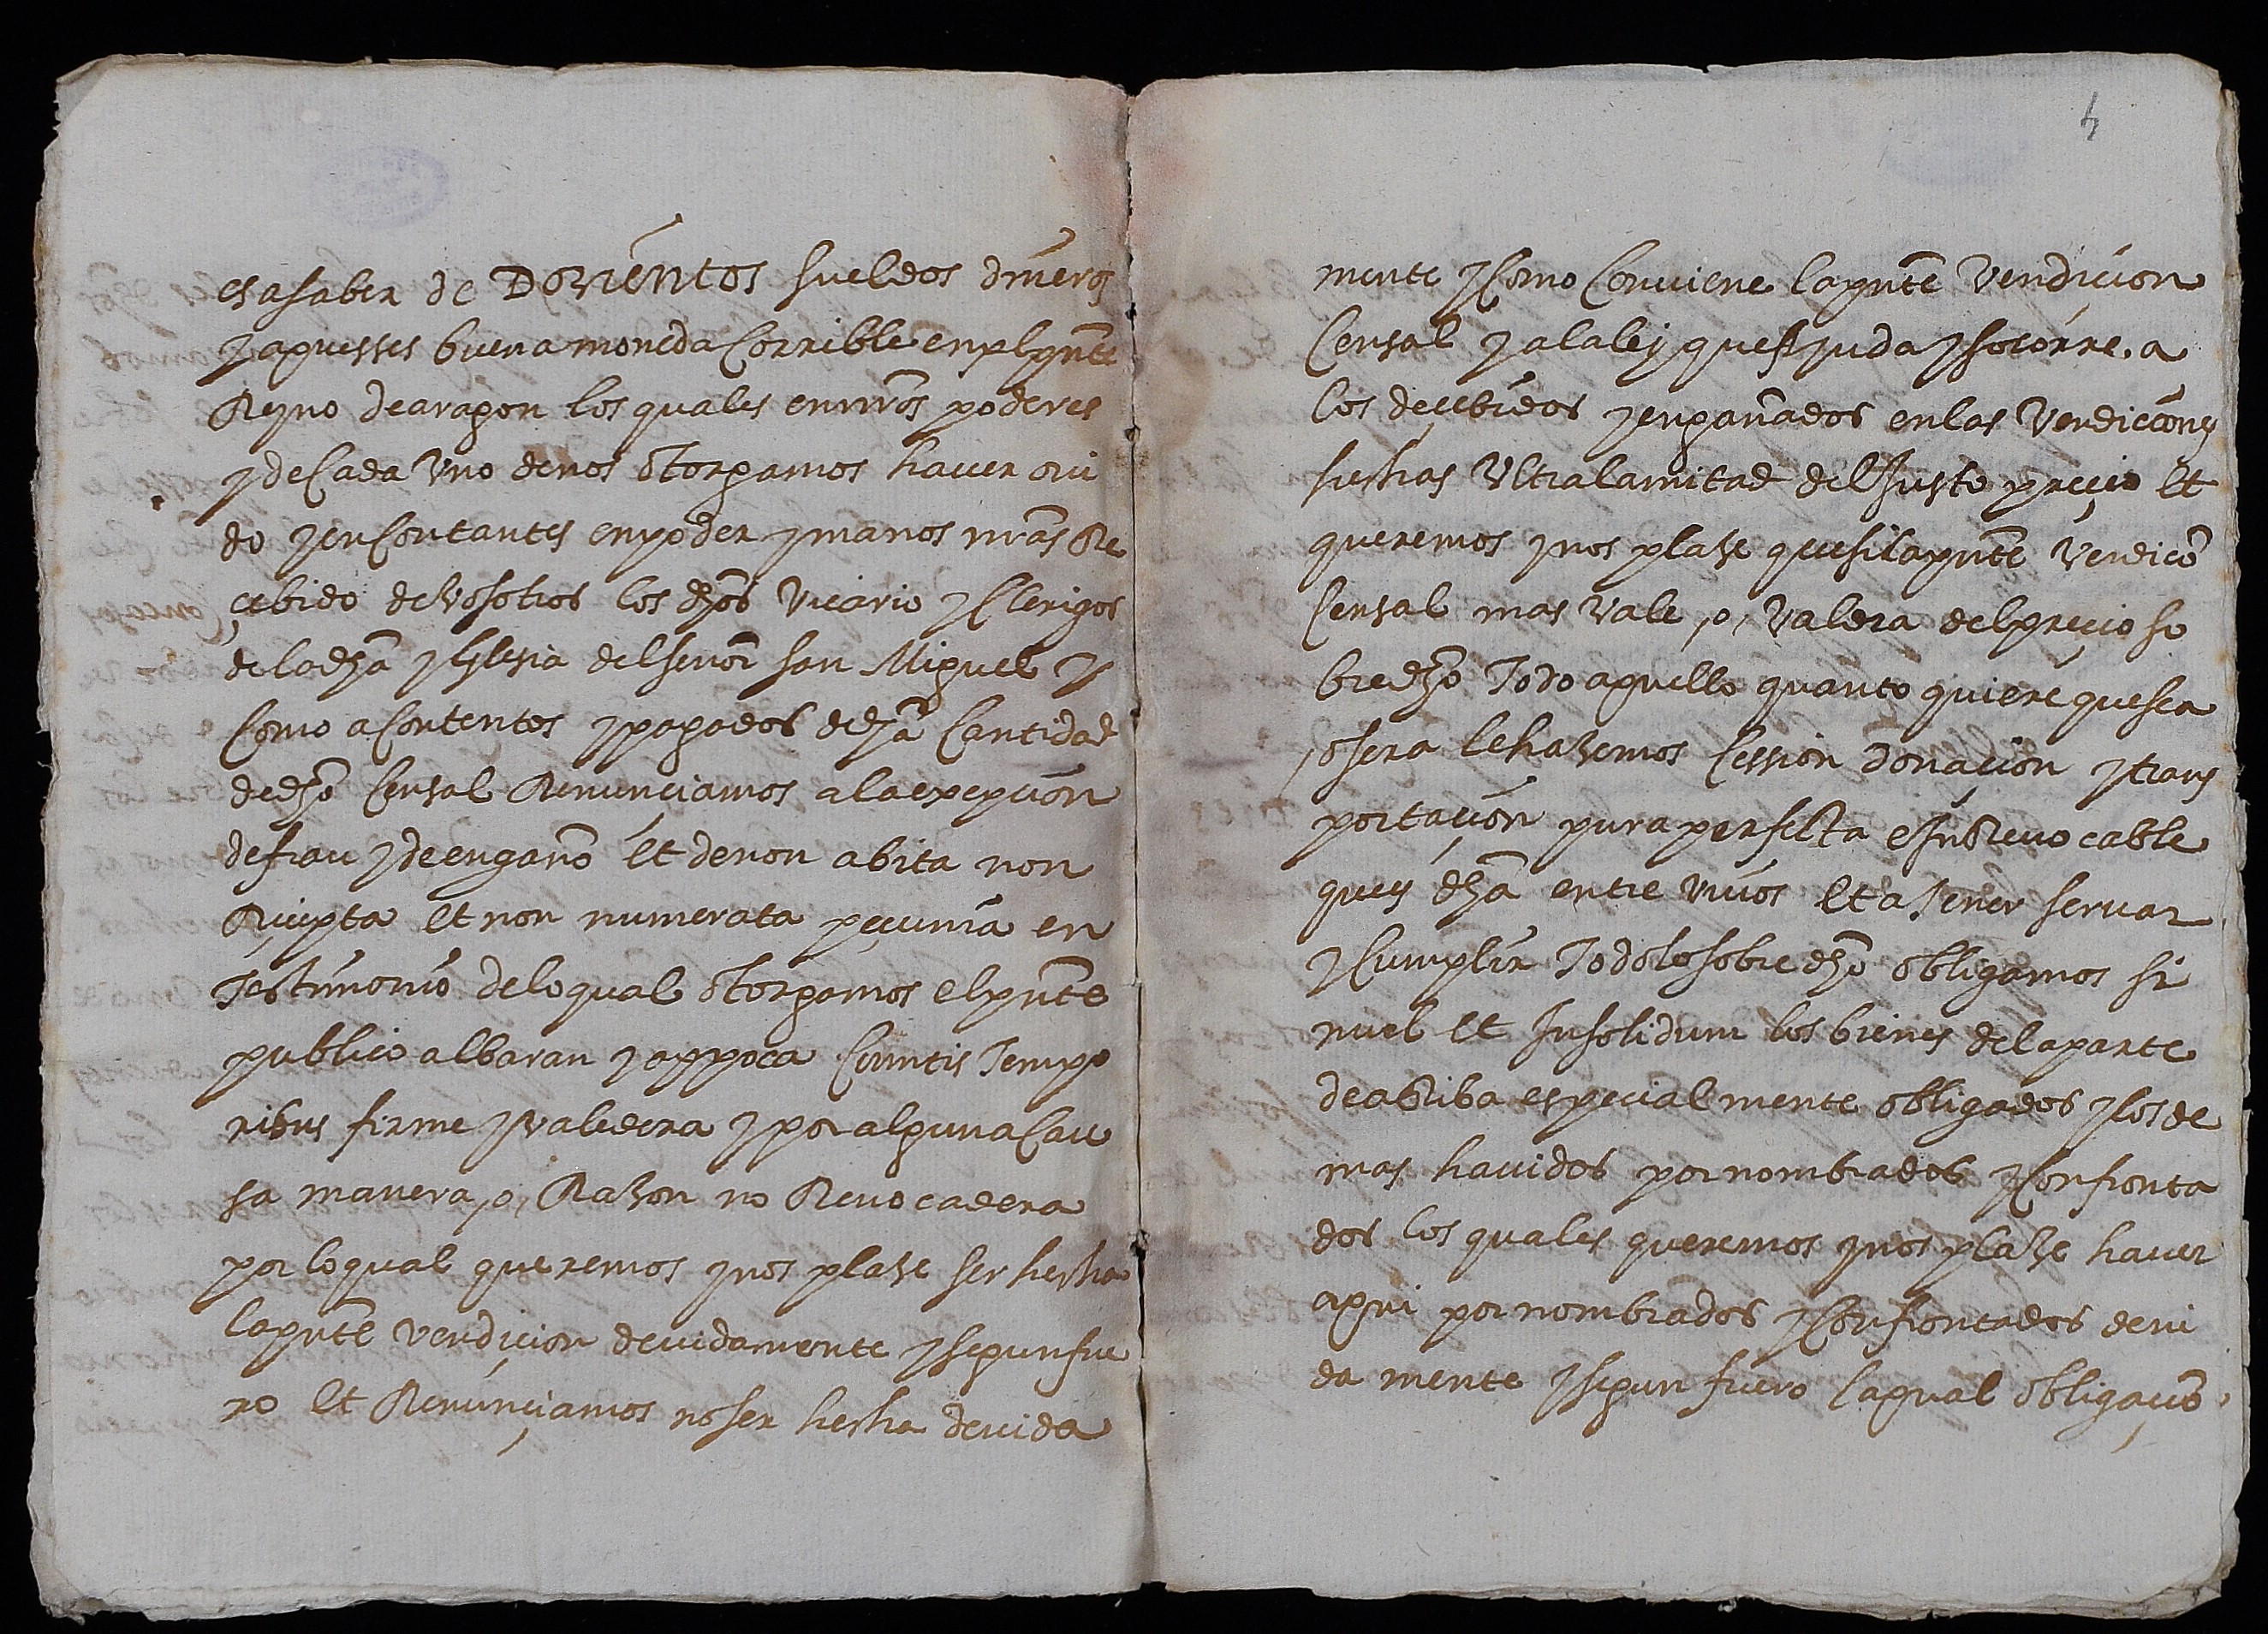 es a saber de Dozientos sueldos dineros
jaquesses buena moneda Corrible en el pnte
Reyno de aragon los quales en nros poderes
y de Cada Vno de nos otorgamos hauer oui
do y en Contantes en poder y manos nras Re
çebido de Vosotros los dhos Vicario y Clerigos
de la dha yglesia del señor san Miguel y
Como a Contentos y pagados de dha Cantidad
de dho Censal Renunçiamos a la exepçion
de frau y de engaño et de non abita non
Reçepta et non numerata peçunia en
Testimonio de lo qual otorgamos el pnte
publico albaran y appoca Cunctis Tempo
ribus firme y valedera y por alguna Cau
sa manera, o, Razon no Reuocadera
por lo qual queremos y nos plaze ser hecha
la pnte vendiçion deuidamente y segun fue
ro et Renunçiamos no ser hecha deuida
4
mente y Como Conuiene la pnte Vendicion
Censal y a la ley que ajuda y socorre. a
los deçebidos y engañados en las Vendiciones
hechas Vltra la mitad del Justo preçio et
queremos y nos plaze que si la pnte Vendicõ
Censal mas Vale, o, Valdra del preçio so
bredho Todo aquello quanto quiere que sea
, o sera le hazemos Cession donaçion y trans
portaçion pura perfecta e inReuocable
que es dha entre viuos et a Tener seruar
y Cumplir Todo lo sobredho obligamos si
mul et Insolidum los bienes de la parte
de aRiba especialmente obligados y los de
mas hauidos por nombrados y Confronta
dos los quales queremos y nos plaze hauer
aqui por nombrados y Confrontados deui
da mente y segun fuero la qual obligaçiõ